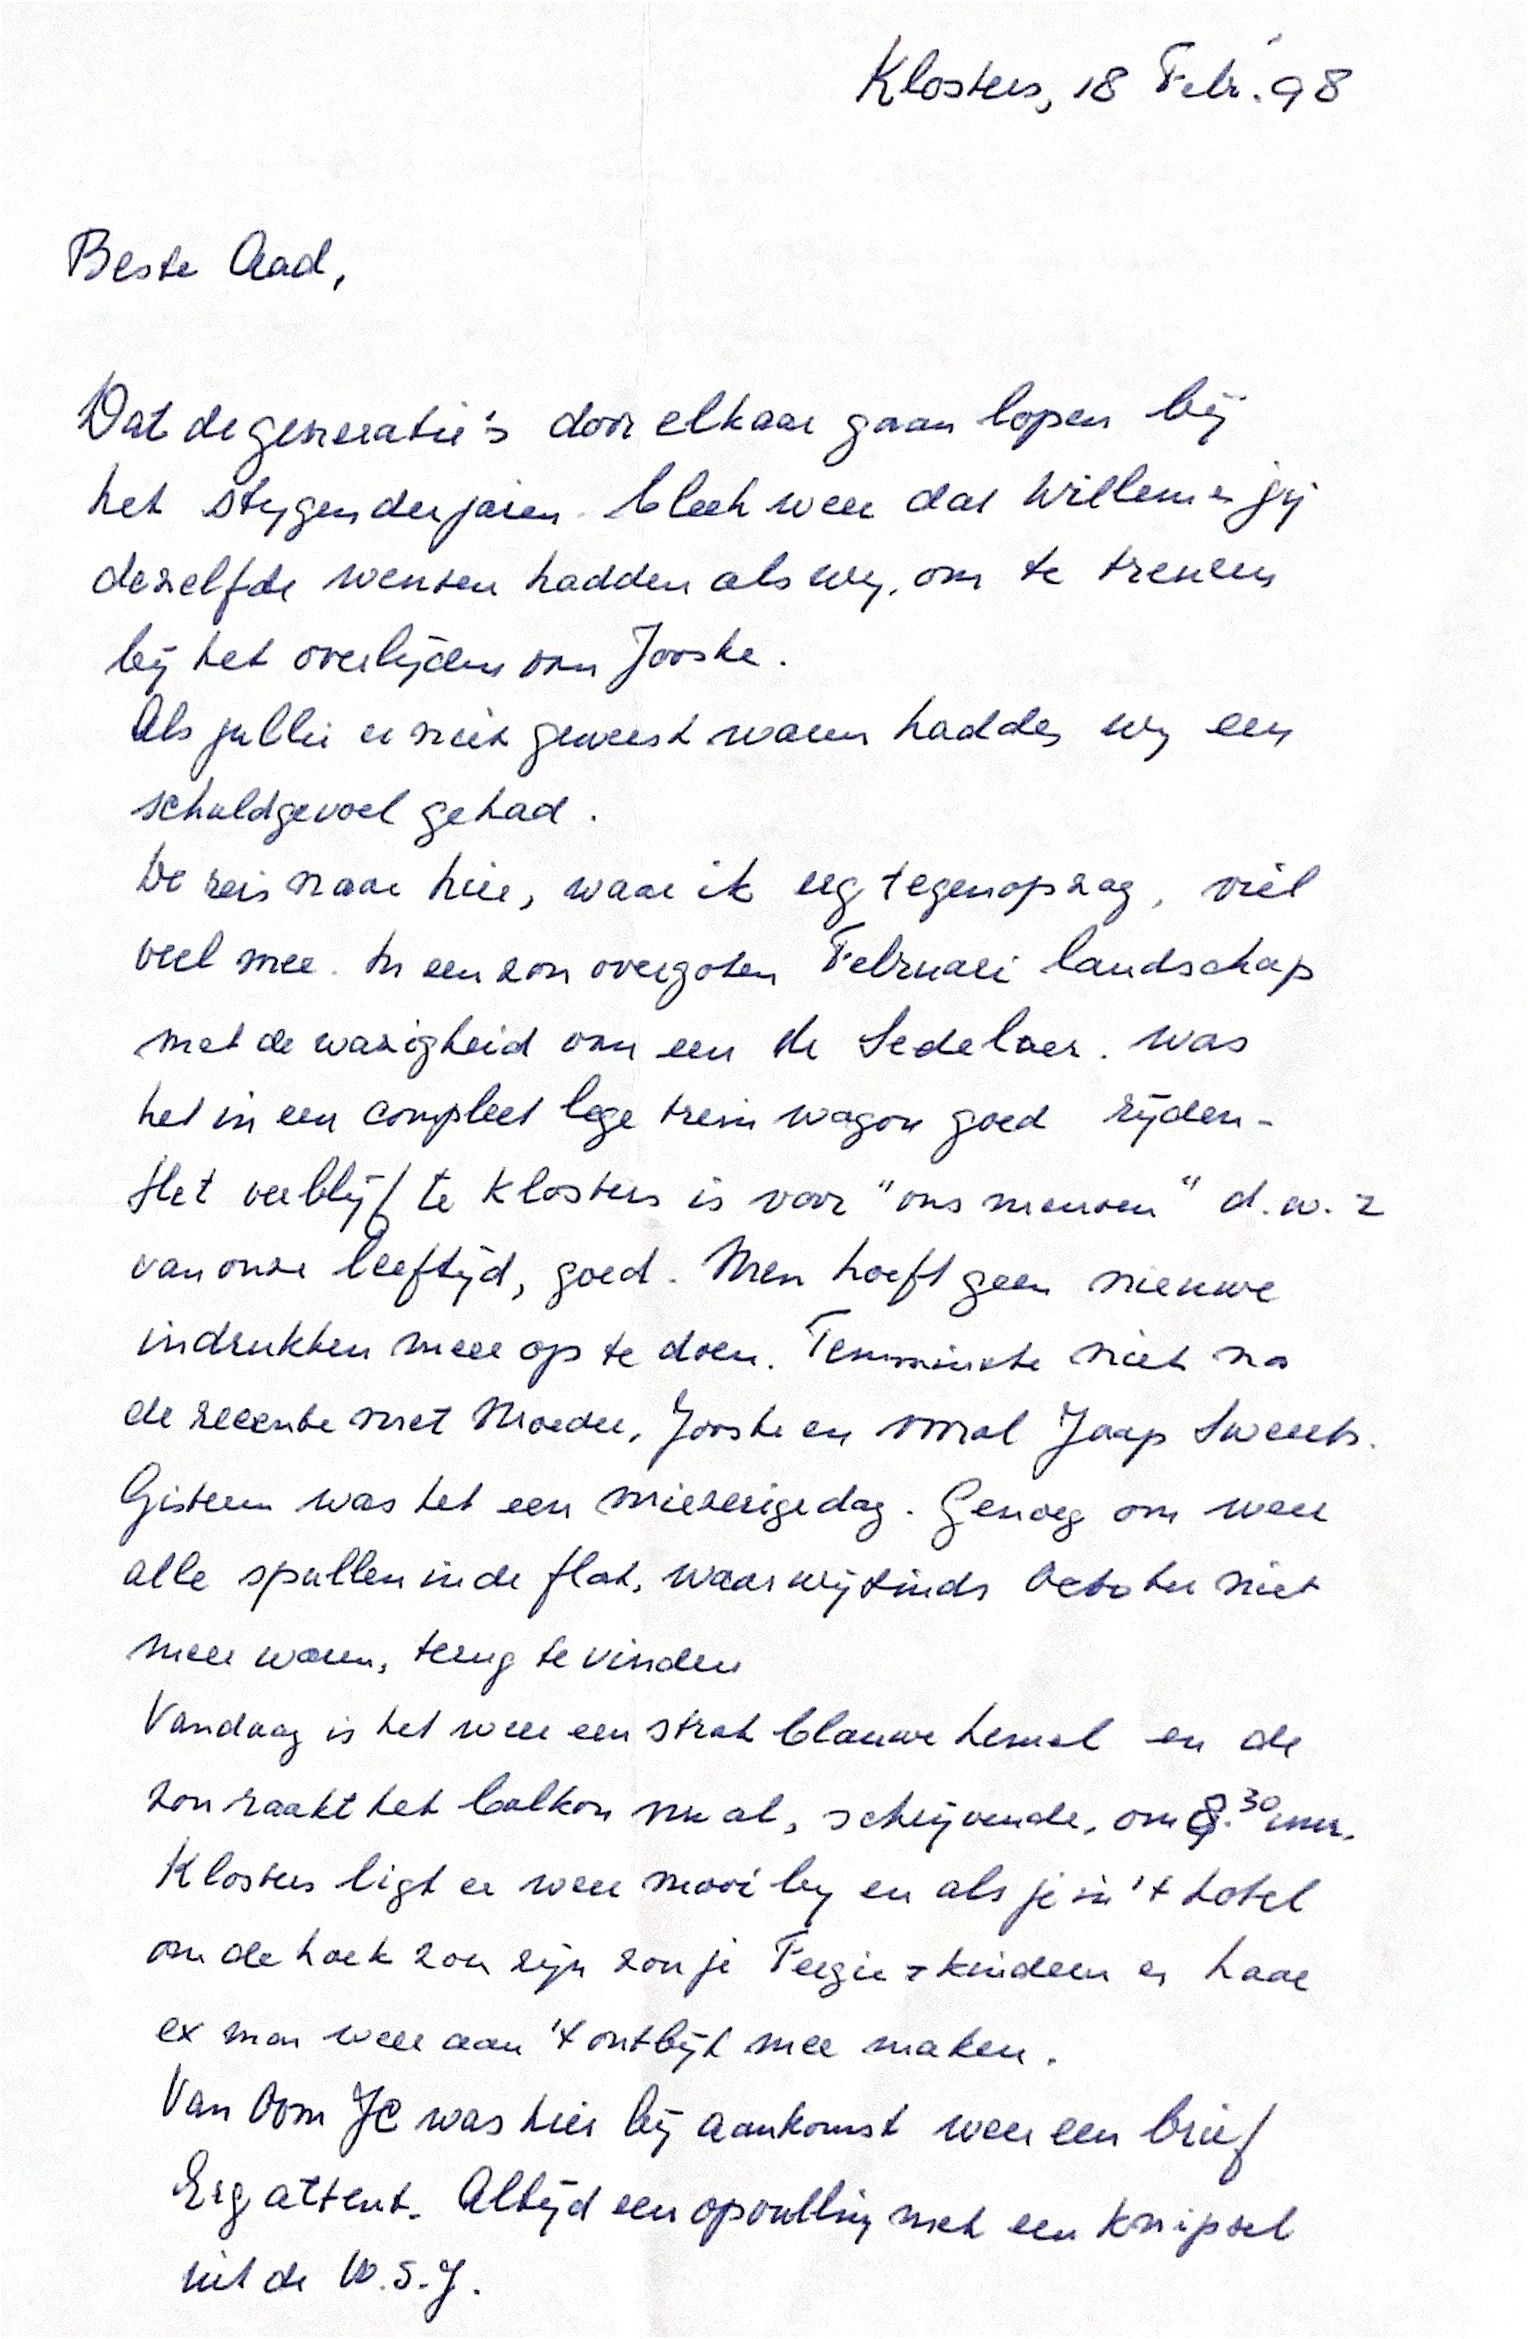 Klosters, 18 Febr. '98
Beste Aad,
Dat de generatie's door elkaar gaan lopen bij
het stygen der jaren bleek weer dat Willem en jij
dezelfde wensen hadden als wy, om te treuren
bij het overlijden van Jooske.
Als jullie er niet geweest waren hadden wy een
schuldgevoel gehad.
De reis naar hier, waar ik erg tegenop zag, viel
veel mee. In een zon overgoten Februari landschap
met de wazigheid van een de Sedelaer. was
het in een compleet lege trein wagon goed rijden.
Het verblijf te Klosters is voor "ons mensen" d.w.z
van onze leeftijd, goed. Men hoeft geen nieuwe
indrukken meer op te doen. Tenminste niet na
de recente met Moeder, Jooske en vooral Jaap Sweerts.
Gisteren was het een miezerige dag. Genoeg om weer
alle spullen in de flat, waar wij sinds October niet
meer waren, terug te vinden
Vandaag is het weer een strak blauwe hemel en de
zon raakt het balkon nu al, schrijvende, om 8.30 uur.
Klosters ligt er weer mooi by en als je in 't hotel
om de hoek zou zijn zou je Fergie + kinderen en haar
ex man weer aan 't ontbijt mee maken.
Van Oom JC was hier bij aankomst weer een brief
Erg attent. Altijd een opvulling met een knipsel
uit de W.S.J.